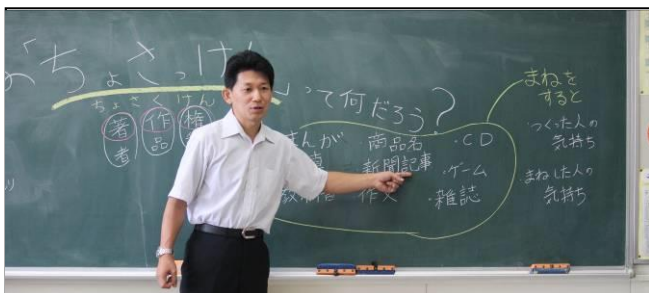 「ちょさっけんって何だろう?
ちょさくけん
著作権
者品
まんが 商品名 ・CD
新聞記事 ・ゲーム
作文 ・雑誌
まねを
すると
つくった人の
気持ち
まねした人の
気持ち